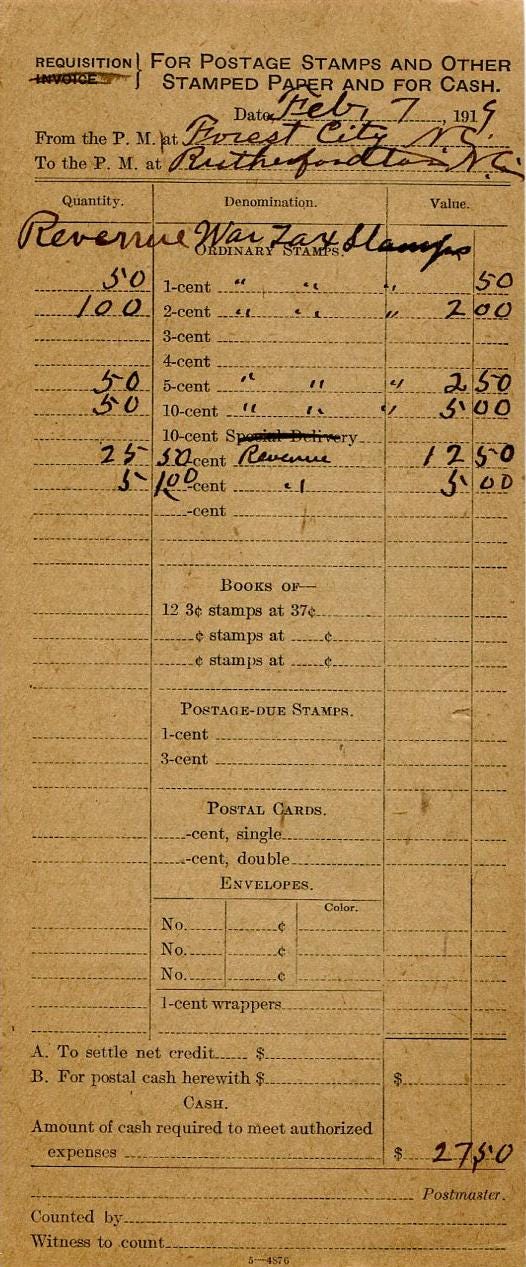 REQUISITION } FOR POSTAGE STAMPS AND OTHER
INVOICE STAMPED PAPER AND FOR CASH.
Date, Feby 7, 1919
From the P. M. at Forest City N.C.
To the P. M. at Rutherfordton N.C.
Quantity. Denomination. Value.
Revenue War Tax Stamps
ORDINARY STAMPS.
50 1-cent " " " 50
100 2-cent " " " 2 00
3-cent
4-cent
50 5-cent " " " 2 50
50 10-cent " " " 5 00
10-cent Special Delivery
25 50-cent Revenue 12 50
5 1.00-cent " 5 00
-cent
BOOKS OF—
12 3¢ stamps at 37¢
¢ stamps at ¢
¢ stamps at ¢
POSTAGE-DUE STAMPS.
1-cent
3-cent
POSTAL CARDS.
-cent, single
-cent, double
ENVELOPES.
Color.
No. ¢
No. ¢
No. ¢
1-cent wrappers
A. To settle net credit $
B. For postal cash herewith $ $
CASH.
Amount of cash required to meet authorized
expenses $ 27 50
Postmaster.
Counted by
Witness to count
5—4876